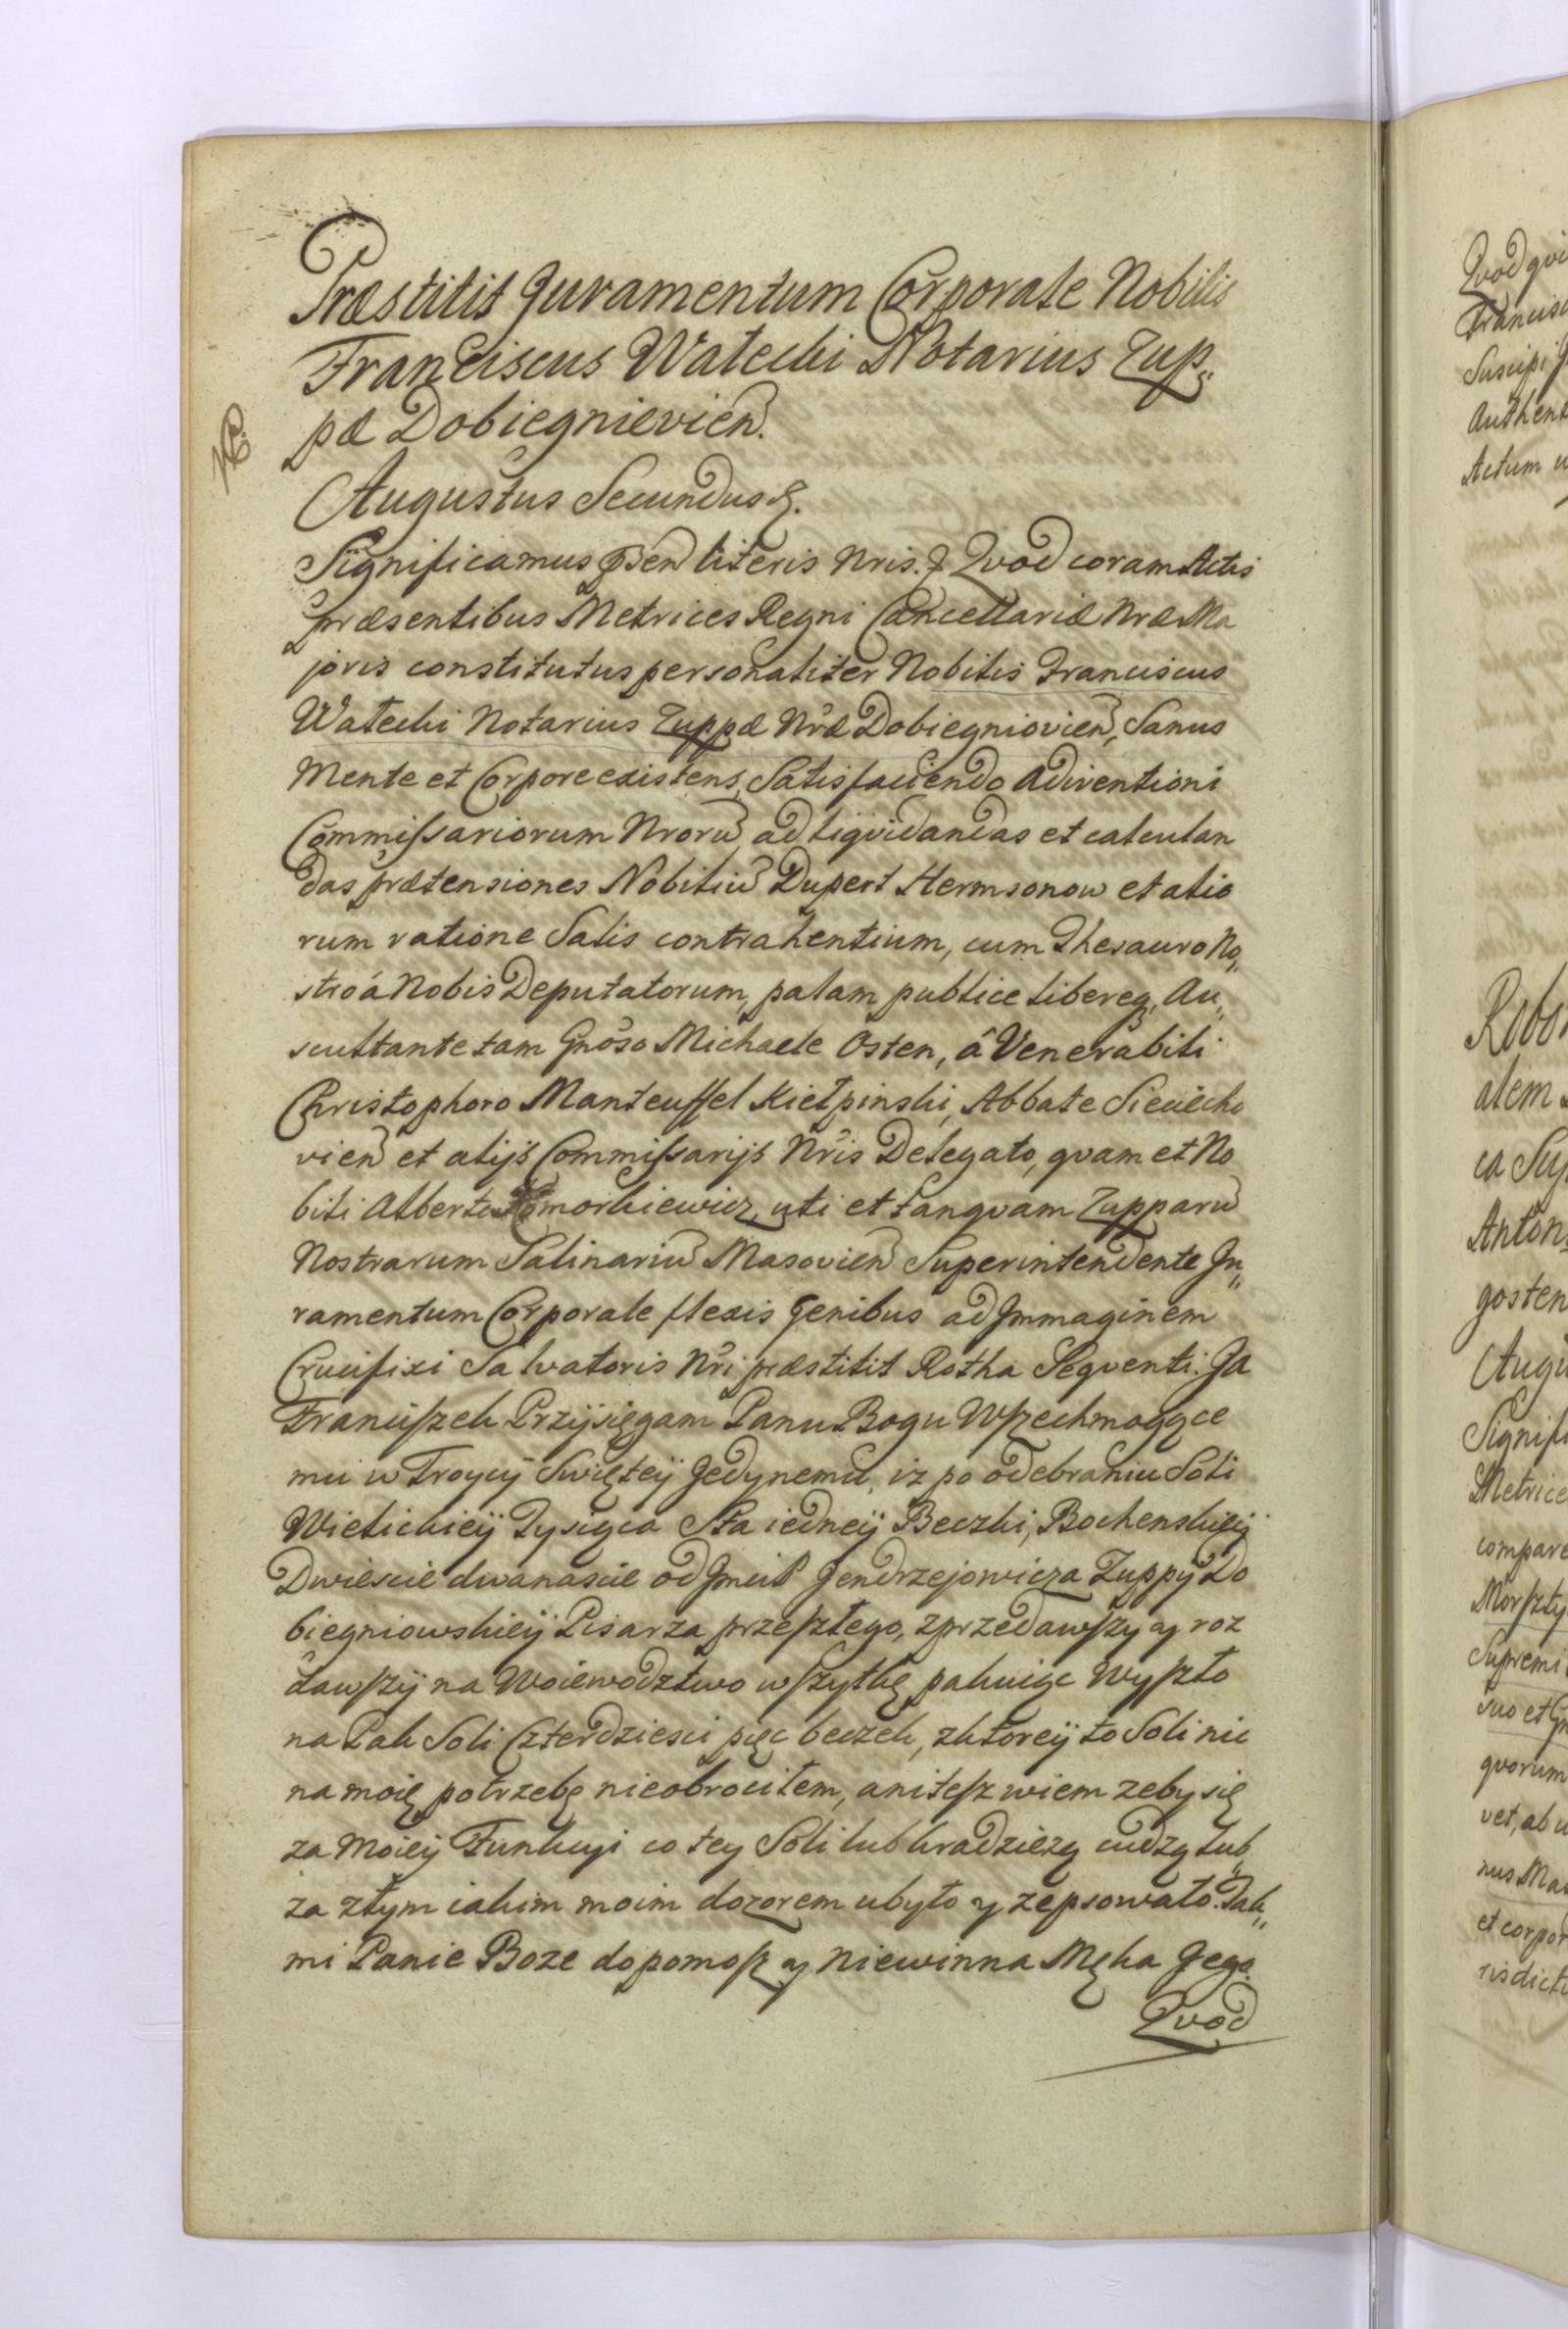 Præstitit Juramentum Corporale Nobilis
Franciscus Watecki Notarius Zup„
pæ Dobiegnievien̄.
Augustus Secundus &.
Significamus p̄sen̄ literis Nris. & Qvod coram Actis
præsentibus Metrices Regni Cancellariæ Nræ Ma
joris constitutus personaliter Nobilis Franciscus
Watecki Notarius Zuppæ Nr̄æ Dobiegniovien̄, Sanus
Mente et Corpore existens, Satisfaciendo Adinventioni
Commissariorum Nrorū ad liqvidandas et calculan
das prætensiones Nobiliū Dupert Hermsonow et alio
rum ratione Salis contrahentium, cum Thesauro No„
stro á Nobis Deputatorum, palam publice libereq, Au„
scultante tam Gnōso Michaele Osten, á Venerabili
Christophoro Manteuffel Kiełpinski, Abbate Sieciecho
vien̄ et alijs Commissarijs Nr̄is Delegato, qvam et No
bili Alberto Komorkiewicz, uti et tanqvam Zupparū
Nostrarum Salinariū Masovien̄ Superintendente Ju„
ramentum Corporale flexis genibus ad Immaginem
Crucifixi Salvatoris Nr̄i præstitit Rotha Seqventi. Ja
Franciszek Przysięgam Panu Bogu Wszechmogące
mu w Troycy Swiętey Jedynemu, iz po odebraniu Soli
Wielickiey Tysiąca Sta iedney Beczki, Bochenskiey
Dwiescie dwanascie od Jmci P Jendrzejowicza Zuppy Do
biegniowskiey Pisarza przeszłego, zprzedawszy ay roz
dawszy na Woiewodztwo wszytkę pakuiąc Wyszło
na Pak Soli Czterdziesci pięc beczek, zktorey to Soli nic
na moię potrzebę nieobrociłem, ani tesz wiem zeby się
za Moiey Funkcyi co tey Soli lub kradziezą cudzą lub„
za złym iakim moim dozorem ubyło ay zepsowało. Tak„
mi Panie Boze dopomosz ay Niewinna Męka Jego.
Qvod
Qvod qvi
Francis
Suscipi
Authen
Actum u
Robo
alem
ca Su
Anton
gosten
Augu
Signifi
Metrice
compar
Morszty
Supremi
suo et
qvorum
vet, ab
nus Ma
et corpor
ris dict